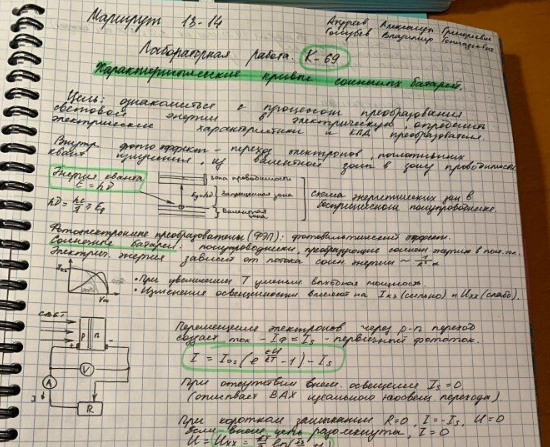 Маршрут 13-14
Андреев Александр Григорьевич
Голубев Владимир Геннадьевич
Лабораторная работа. К-69
Характеристические кривые солнечных батарей.
Цель: ознакомиться с процессом преобразования
световой энергии в электрическую, определить
электрические характеристики и КПД преобразования.
Внутр. фотоэффект - переход электронов, поглотивших
квант излучения, из валентной зоны в зону проводимости
Энергия кванта
E = hν
зона проводимости
запрещенная зона
Валентная зона
схема энергетических зон в
беспримесном полупроводнике.
hν = hc/λ ≥ Eg
Фотоэлектрические преобразователи (ФЭП): фотовольтаический эффект.
Солнечные батареи: полупроводники, преобразующие солнечн энергию в
Электрич. энергия зависит от потока солн энергии ~
• При увеличении T уменьш. выходная мощность.
• Изменения освещенности влияет на Iкз (сильно) и Uхх (слабо).
свет
p n
V
A
R
Перемещение электронов через p-n переход
создает ток - Iф = Is - первичный фототок.
I = Ios (e^(eU/kT) - 1) - Is
При отсутствии внеш. освещения Is = 0
(описывает ВАХ идеального p-n перехода)
При коротком замыкании R=0, I=-Is, U=0
Если внешн. цепь разомкнуты, I=0
U = Uxx =